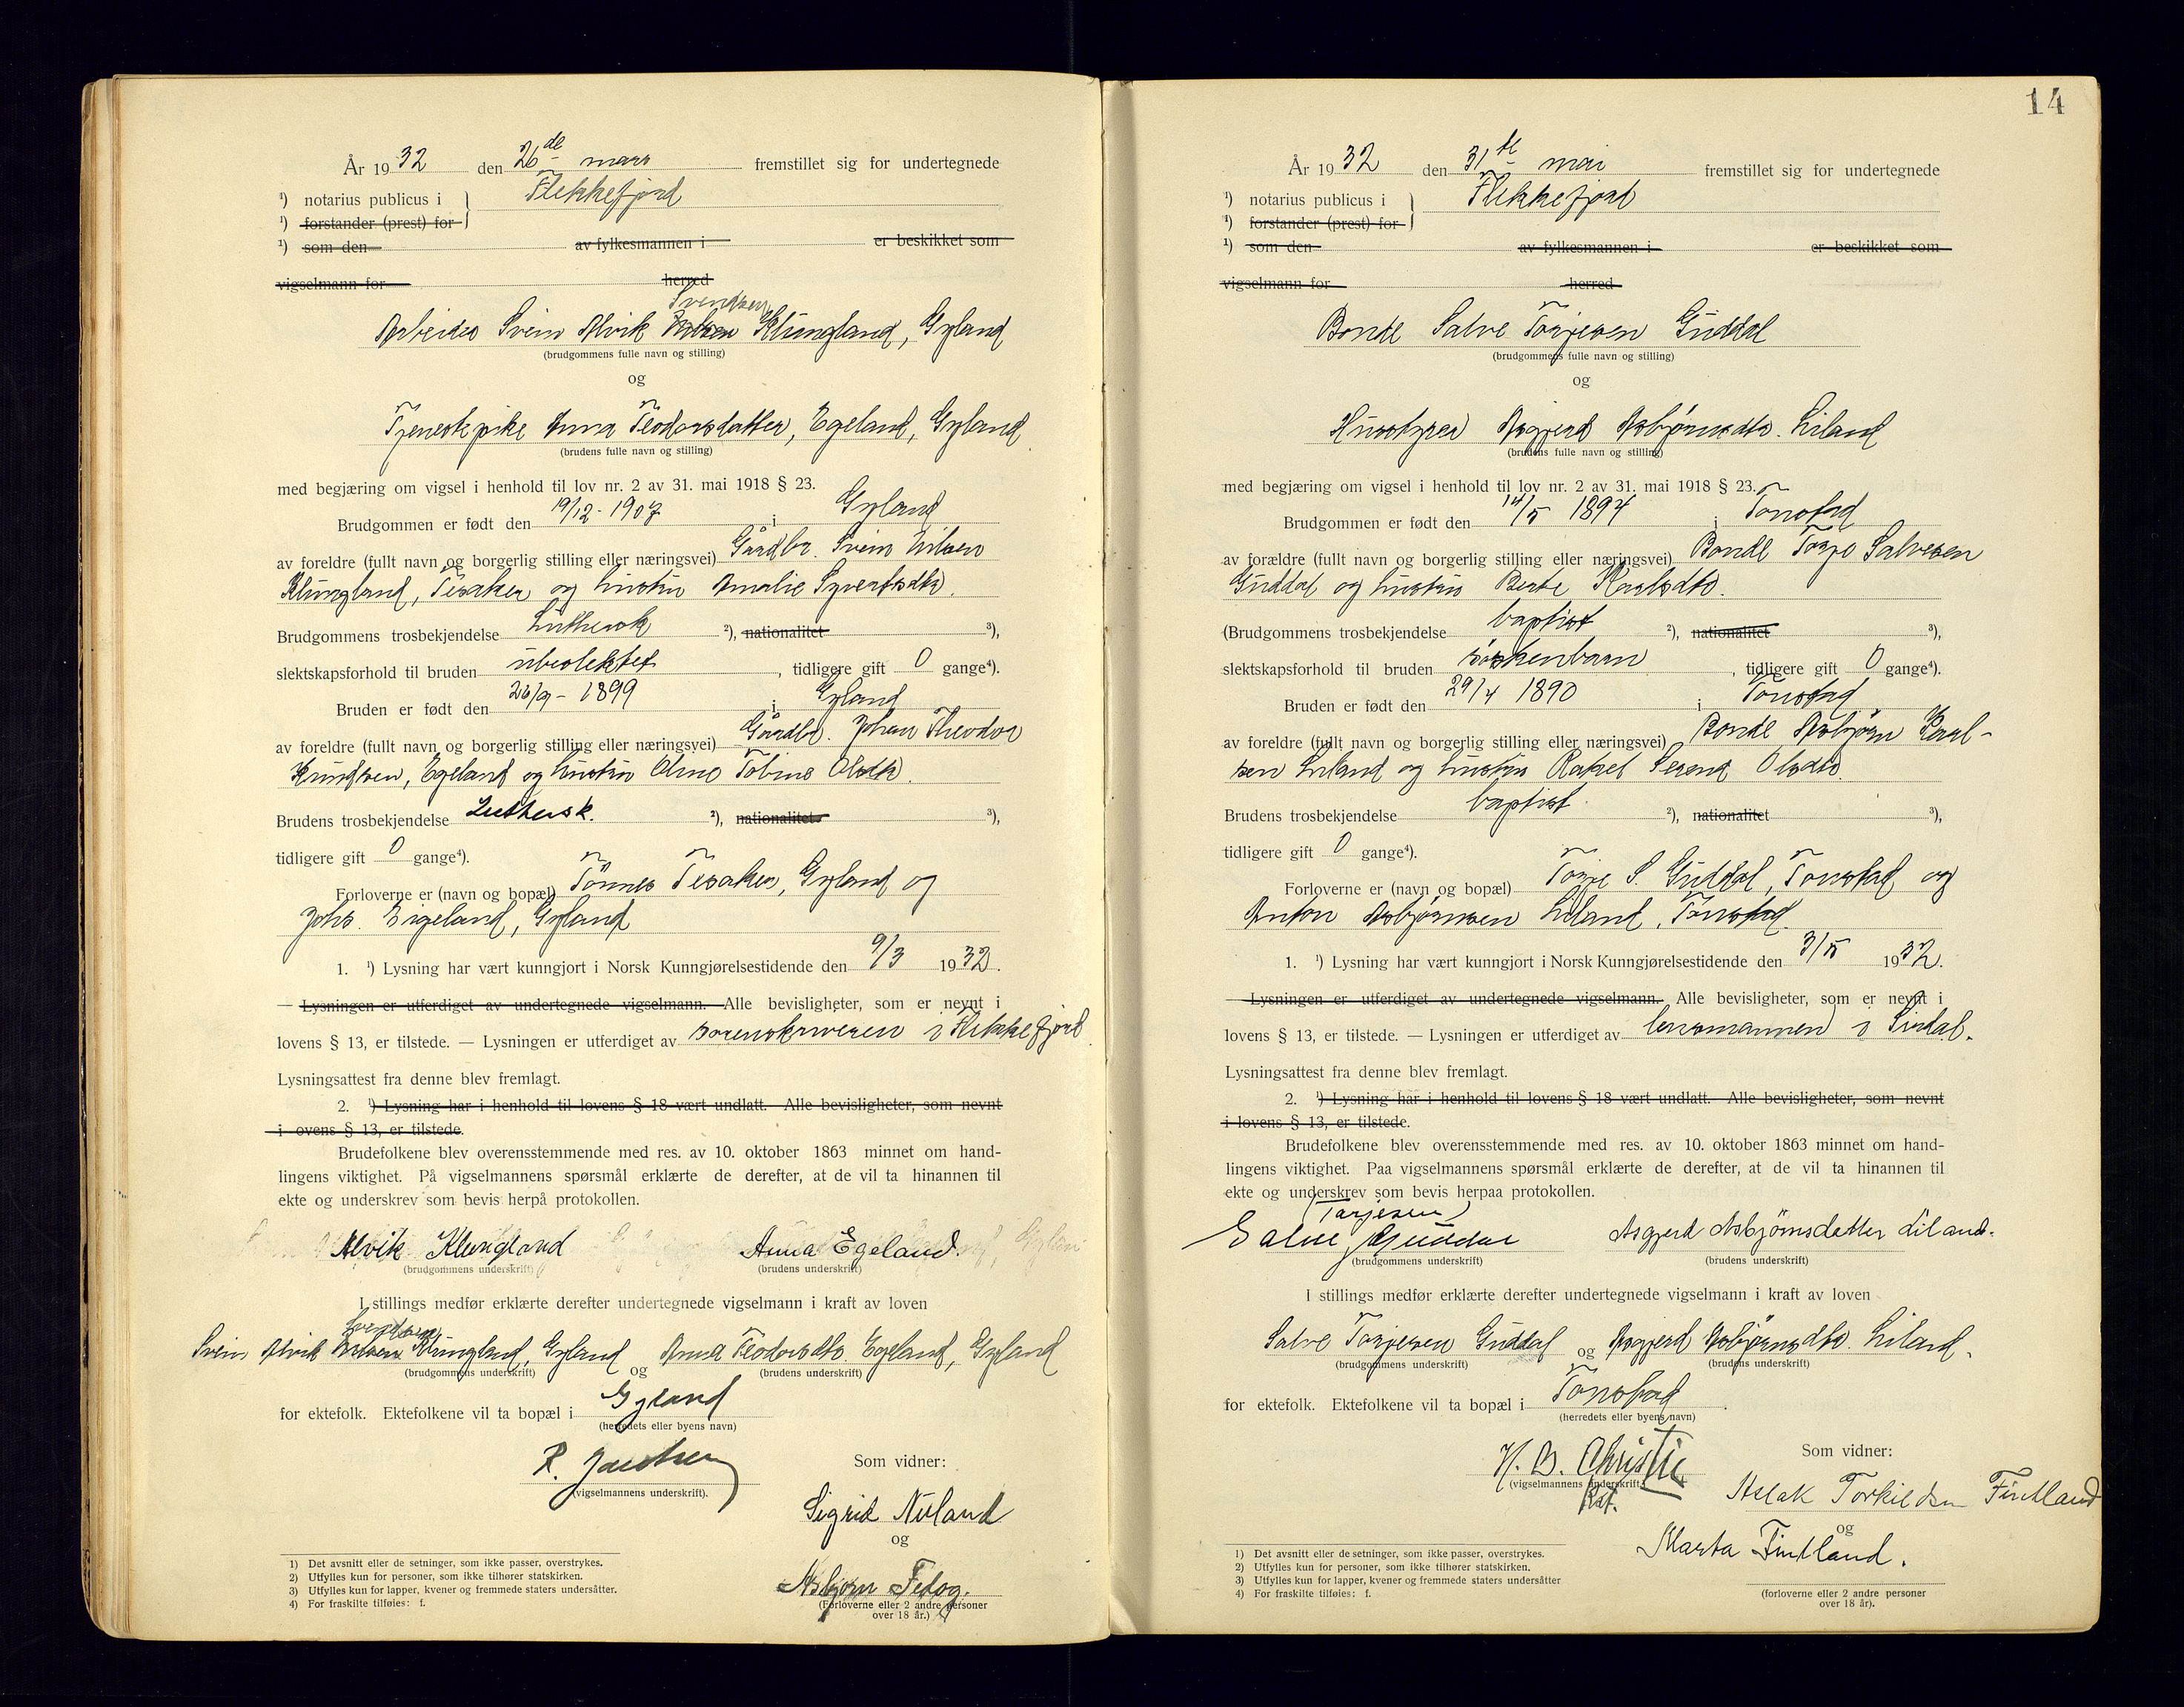 År 1932 den 26de mars fremstillet sig for undertegnede
¹) notarius publicus i } Flekkefjord
¹) forstander (prest) for
¹) som den av fylkesmannen i er beskikket som
vigselmann for herred
Svendsen
Arbeider Svein Alvik Klungland, Gyland
(brudgommens fulle navn og stilling)
og
Tjenestepike Anna Teodorsdatter, Egeland, Gyland
(brudens fulle navn og stilling)
med begjæring om vigsel i henhold til lov nr. 2 av 31. mai 1918 § 23.
Brudgommen er født den 19/12 - 1907 i Gyland
av foreldre (fullt navn og borgerlig stilling eller næringsvei) Gårdbr. Svein Eilsen
Klungland, Tesaker og hustru Amalie Syvertsdtr.
Brudgommens trosbekjendelse Luthersk ²), nationalitet ³),
slektskapsforhold til bruden ubeslektet, tidligere gift 0 gange⁴).
Bruden er født den 26/9 - 1899 i Gyland
av foreldre (fullt navn og borgerlig stilling eller næringsvei) Gårdbr. Johan Theodor
Knudsen, Egeland og hustru Tobine Olsdtr.
Brudens trosbekjendelse Luthersk. ²), nationalitet ³),
tidligere gift 0 gange⁴).
Forloverne er (navn og bopæl) Tönnes Tesaker, Gyland og
Johs. Eigeland, Gyland
1. ¹) Lysning har vært kunngjort i Norsk Kunngjørelsestidende den 9/3 1932.
— Lysningen er utferdiget av undertegnede vigselmann. Alle bevisligheter, som er nevnt i
lovens § 13, er tilstede. — Lysningen er utferdiget av sorenskriveren i Flekkefjord
Lysningsattest fra denne blev fremlagt.
2. ¹) Lysning har i henhold til lovens § 18 vært undlatt. Alle bevisligheter, som nevnt
i ovens § 13, er tilstede.
Brudefolkene blev overensstemmende med res. av 10. oktober 1863 minnet om hand-
lingens viktighet. På vigselmannens spørsmål erklærte de derefter, at de vil ta hinannen til
ekte og underskrev som bevis herpå protokollen.
Alvik Klungland Anna Egeland.
(brudgommens underskrift) (brudens underskrift)
I stillings medfør erklærte derefter undertegnede vigselmann i kraft av loven
Svendsen
Svein Alvik Klungland, Gyland og Anna Teodorsdtr. Egeland, Gyland
(brudgommens underskrift) (brudens underskrift)
for ektefolk. Ektefolkene vil ta bopæl i Gyland
(herredets eller byens navn)
R. Jacobsen
(vigselmannens underskrift).
Som vidner:
Sigrid Nuland
og
Asbjørn Fedog.
(Forloverne eller 2 andre personer
over 18 år.)
1) Det avsnitt eller de setninger, som ikke passer, overstrykes.
2) Utfylles kun for personer, som ikke tilhører statskirken.
3) Utfylles kun for lapper, kvener og fremmede staters undersåtter.
4) For fraskilte tilføies: f.
14
År 1932 den 31te mai fremstillet sig for undertegnede
¹) notarius publicus i } Flekkefjord
¹) forstander (prest) for
¹) som den av fylkesmannen i er beskikket som
vigselmann for herred
Bonde Salve Torjesen Guddal
(brudgommens fulle navn og stilling)
og
Husstyrer Asgjerd Asbjørnsdtr. Liland
(brudens fulle navn og stilling)
med begjæring om vigsel i henhold til lov nr. 2 av 31. mai 1918 § 23.
Brudgommen er født den 14/5 1894 i Tonstad
av forældre (fullt navn og borgerlig stilling eller næringsvei) Bonde Torje Salvesen
Guddal og hustru Berte Karlsdtr.
(Brudgommens trosbekjendelse baptist ²), nationalitet ³),
slektskapsforhold til bruden søskenbarn, tidligere gift 0 gange⁴).
Bruden er født den 29/4 1890 i Tonstad
av foreldre (fullt navn og borgerlig stilling eller næringsvei) Bonde Asbjørn Karl-
sen Liland og hustru Rakel Serene Olsdtr.
Brudens trosbekjendelse baptist. ²), nationalitet ³),
tidligere gift 0 gange⁴).
Forloverne er (navn og bopæl) Torje S. Guddal, Tonstad og
Anton Asbjørnsen Liland, Tonstad.
1. ¹) Lysning har vært kunngjort i Norsk Kunngjørelsestidende den 3/5 1932.
Lysningen er utferdiget av undertegnede vigselmann. Alle bevisligheter, som er nevnt i
lovens § 13, er tilstede. — Lysningen er utferdiget av lensmannen i Sirdal.
Lysningsattest fra denne blev fremlagt.
2. ¹) Lysning har i henhold til lovens § 18 vært undlatt. Alle bevisligheter, som nevnt
i lovens § 13, er tilstede.
Brudefolkene blev overensstemmende med res. av 10. oktober 1863 minnet om hand-
lingens viktighet. Paa vigselmannens spørsmål erklærte de derefter, at de vil ta hinannen til
ekte og underskrev som bevis herpaa protokollen.
(Tarjesen)
Salve Guddal Asgjerd Asbjörnsdatter Liland.
(brudgommens underskrift) (brudens underskrift)
I stillings medfør erklærte derefter undertegnede vigselmann i kraft av loven
Salve Torjesen Guddal og Asgjerd Asbjørnsdtr. Liland.
(brudgommens underskrift) (brudens underskrift)
for ektefolk. Ektefolkene vil ta bopæl i Tonstad.
(herredets eller byens navn)
H. B. Christie
(vigselmannens underskrift).
Kst.
Som vidner:
Aslak Torkildsen Fintland
og
Marta Fintland.
(forloverne eller 2 andre personer
over 18 år).
1) Det avsnitt eller de setninger, som ikke passer, overstrykes.
2) Utfylles kun for personer, som ikke tilhører statskirken.
3) Utfylles kun for lapper, kvener og fremmede staters undersåtter
4) For fraskilte tilføies: f.